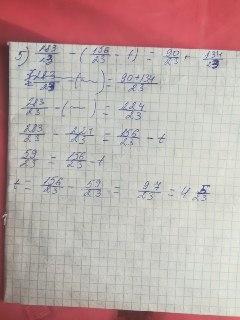 5) 283/23 - (156/23 - t) = 90/23 + 134/23
283/23 - (—) = 90+134/23
283/23 - (—) = 224/23
283/23 - 224/23 = 156/23 - t
59/23 = 156/23 - t
t = 156/23 - 59/23 = 97/23 = 4 5/23